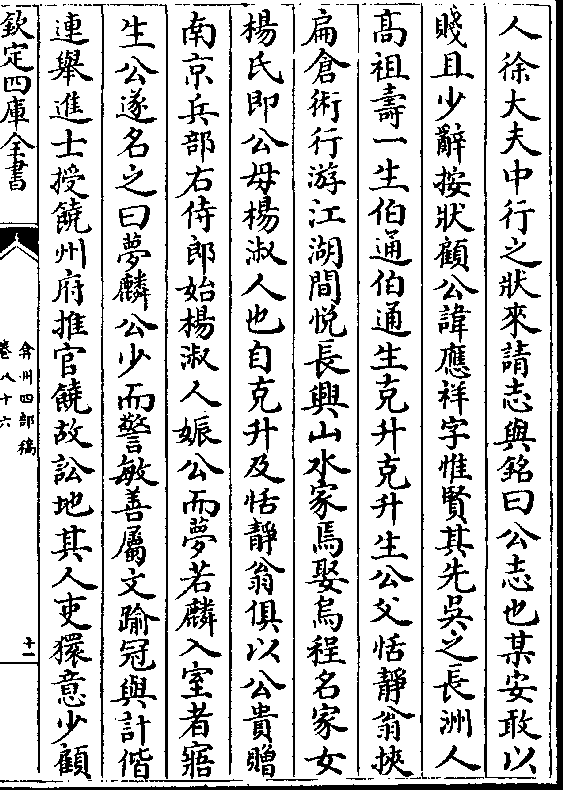 人徐大夫中行之狀來請志與銘曰公志也某安敢以
賤且少辭按狀顧公諱應祥字惟賢其先吳之長洲人
高祖壽一生伯通伯通生克升克升生公父恬靜翁挾
扁倉術行游江湖間悅長興山水家焉娶烏程名家女
楊氏即公母楊淑人也自克升及恬靜翁俱以公貴贈
南京兵部右侍郎始楊淑人娠公而夢若麟入室者寤
生公遂名之曰夢麟公少而警敏善屬文踰冠與計偕
連舉進士授饒州府推官饒故訟地其人吏獧意少顧
欽定四庫全書
弇州四部稿
卷八十六
十一